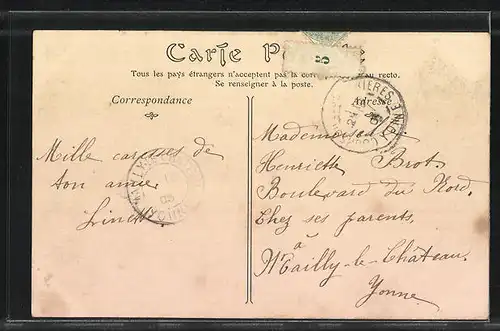 Carte P
5
Tous les pays étrangers n'acceptent pas la corre au recto.
Se renseigner à la poste.
Correspondance
Adresse
Mille caresses de
ton amie
Mademoiselle
Henriette Brot
Boulevard du Nord
Chez ses parents
à
Mailly-le-Château
Yonne